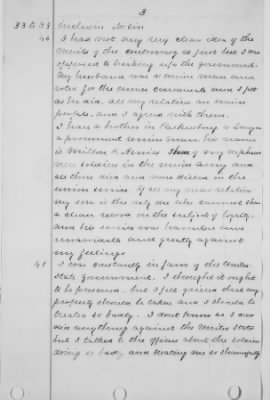 3
33 to 39
40 I had not any very clear idea of the
merits of the controversy at first but I was
opposed to breaking up the government.
My husband was a union man and
voted for the union candidates and I felt
as he did. all my relatives are union
people, and I agreed with them.
I have a brother in
a prominent union man, his name
is Milton Three of my nephews
were soldiers in the union army and
all three died and were killed in the
union service. Of all my near relatives
my son is the only one who cannot show
a clear record on the subject of loyalty.
and his service was harmless and
unavoidable and greatly against
my feelings
41 I was constantly in favor of the United
State government. I thought it ought
to be preserved. but I felt grieved that my
property should be taken and I should be
treated so badly. I dont know as I ever
did anything against the United States
but I talked to the officers about the soldiers
doing so badly and treating me so shamefully